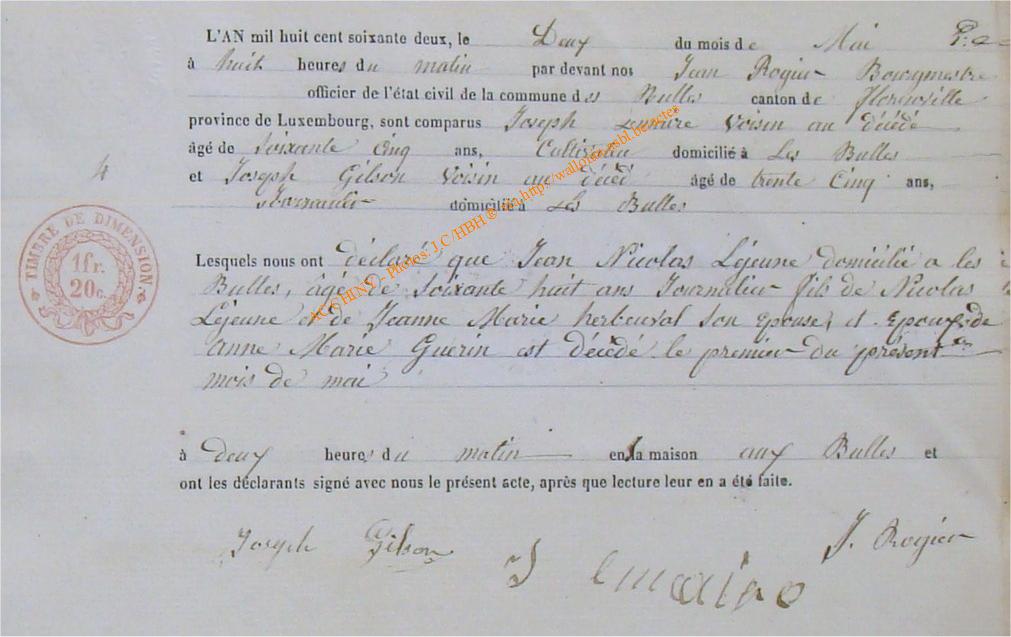 L'AN mil huit cent soixante deux, le Deux du mois de Mai
à huit heures du matin par devant nos Jean Rogier Bourgmestre
officier de l'état civil de la commune des Bulles canton de Florenville
province de Luxembourg, sont comparus Joseph Lemaire Voisin au décédé
âgé de Soixante Cinq ans, Cultivateur domicilié à Les Bulles
4
et Joseph Gilson Voisin au décédé âgé de trente Cinq ans,
Journalier domicilié à Les Bulles
TIMBRE DE DIMENSION
1 fr.
20 c.
Lesquels nous ont déclaré que Jean Nicolas Léjeune domicilié a les
Bulles, âgé de Soixante huit ans Journalier fils de Nicolas
Léjeune et de Jeanne Marie herbeuval son épouse, et Epoux de
Anne Marie Guérin est décédé le premier du présent
mois de mai
à deux heures du matin en sa maison aux Bulles et
ont les déclarants signé avec nous le présent acte, après que lecture leur en a été faite.
Joseph Gilson J Lemaire J. Rogier
ACSHINY - Photos: J.C/HBH @ tm.http:/walloniasbl.be/actes